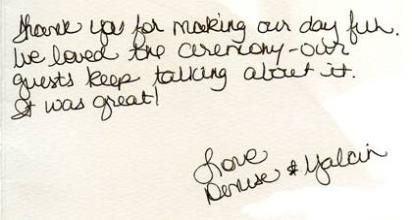 Thank you for making our day fun.
We loved the ceremony-our
guests keep talking about it.
It was great!
Love
Denise & Yalcin